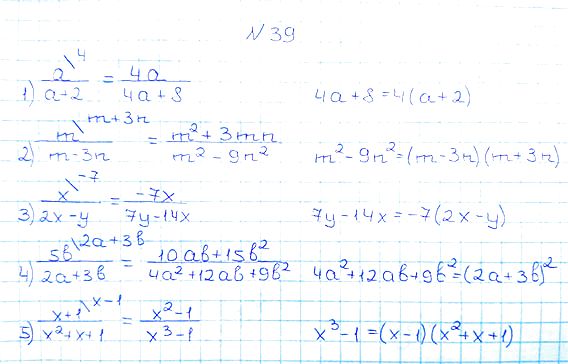 № 39
1) a\4 / a+2 = 4a / 4a+8    4a+8=4(a+2)
2) m\m+3n / m-3n = m²+3mn / m²-9n²    m²-9n²=(m-3n)(m+3n)
3) x\-7 / 2x-y = -7x / 7y-14x    7y-14x=-7(2x-y)
4) 5b\2a+3b / 2a+3b = 10ab+15b² / 4a²+12ab+9b²    4a²+12ab+9b²=(2a+3b)²
5) x+1\x-1 / x²+x+1 = x²-1 / x³-1    x³-1=(x-1)(x²+x+1)